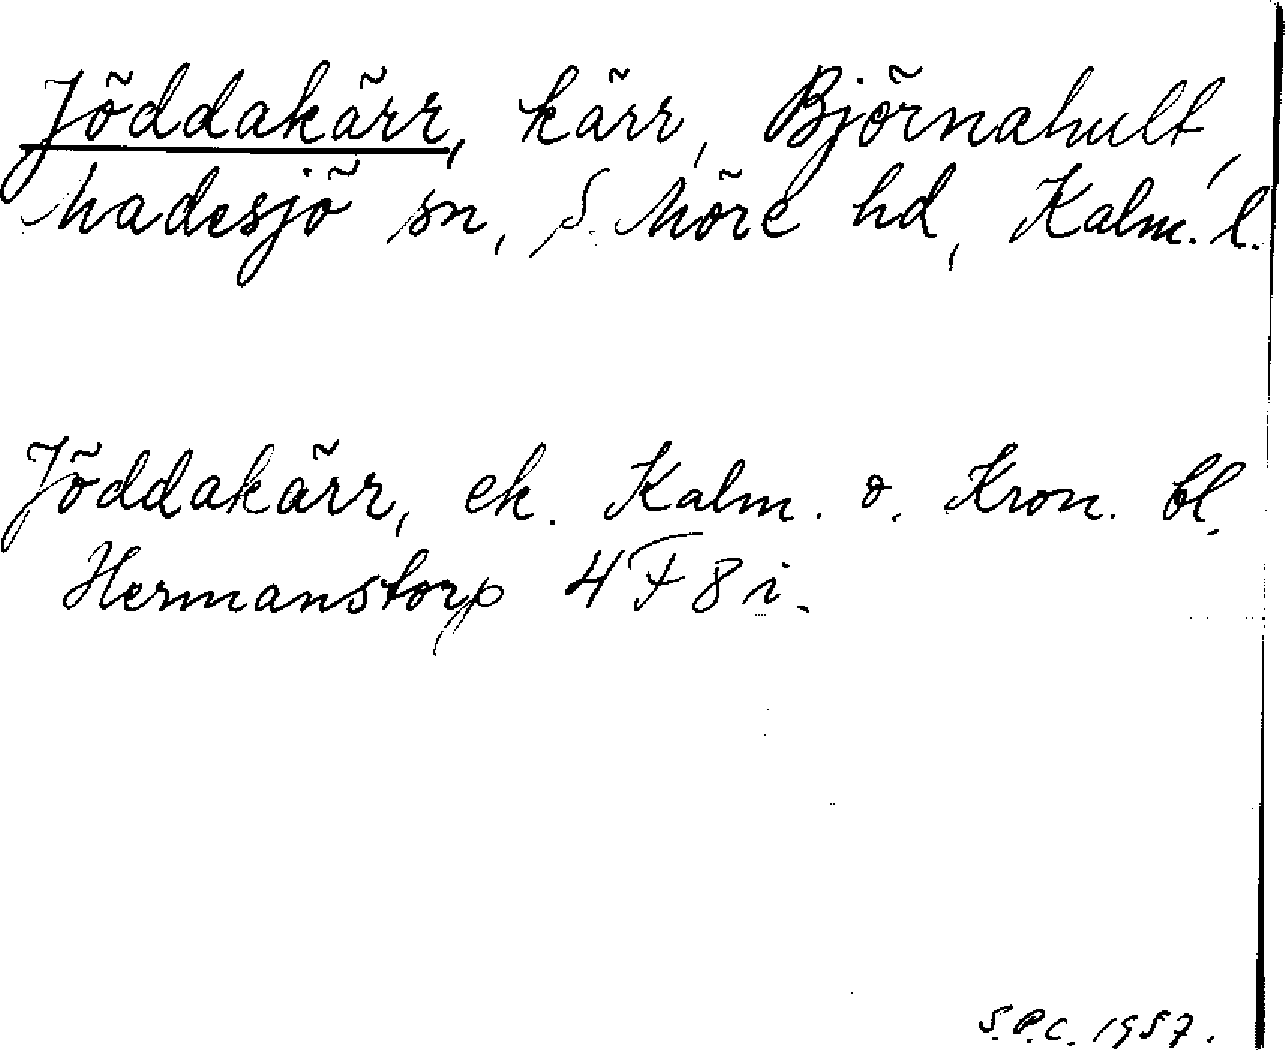 Jöddakärr, kärr, Björnahult,
Madesjö sn, S. Möre hd, Kalm. l.
Jöddakärr, ek. Kalm. o. Kron. bl.
Hermanstorp 4 F 8 i.
S.P.C. 1957.